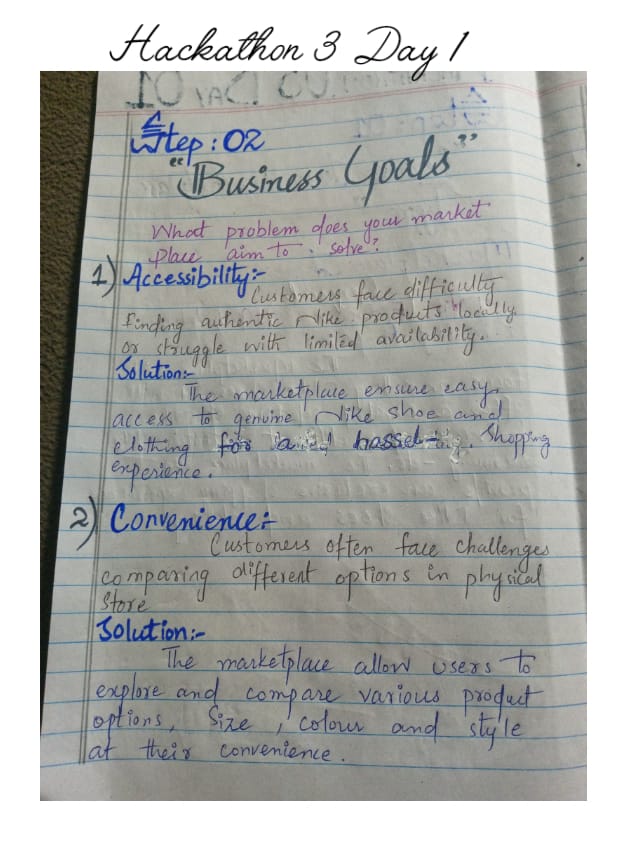 Hackathon 3 Day 1
Step : 02
"Business Goals"
What problem does your market
place aim to solve?
1) Accessibility:-
Customers face difficulty
finding authentic Nike products locally
or struggle with limited availability.
Solution:-
The marketplace ensure easy
access to genuine Nike shoe and
clothing for a hassel- Shopping
experience.
2) Convenience:-
Customers often face challenges
comparing different options in physical
store
Solution:-
The marketplace allow users to
explore and compare various product
options, Size, colour and style
at their convenience.